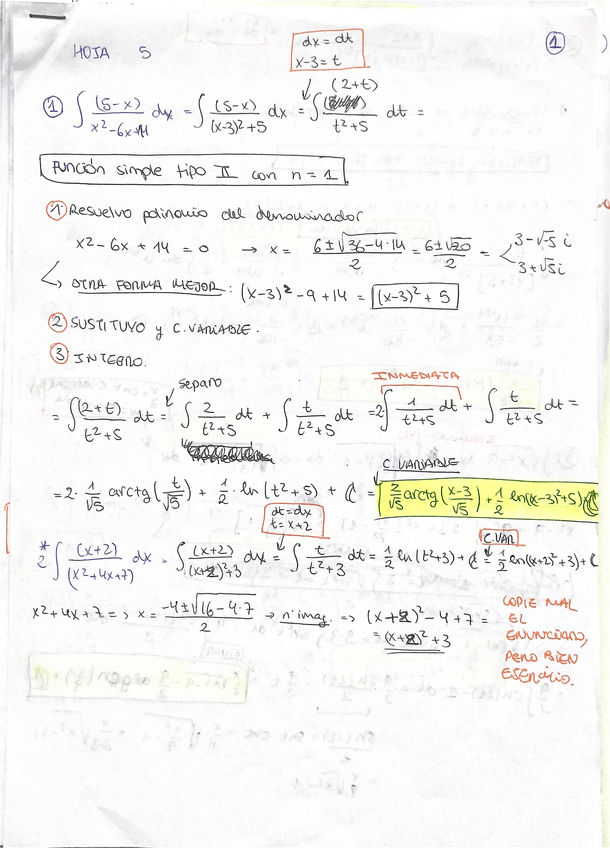 HOJA 5
dx = dt
x-3 = t
1
① ∫ (5-x)/(x²-6x+14) dx = ∫ (5-x)/((x-3)²+5) dx = ∫ (2+t)/(t²+5) dt =
Función simple tipo II con n = 1
① Resuelvo polinomio del denominador
x²-6x+14 = 0 → x = (6±√(36-4·14))/2 = (6±√20)/2 = < 3-√-5 i
3+√5 i
↳ OTRA FORMA MEJOR: (x-3)² -9+14 = (x-3)² + 5
② SUSTITUYO y C.VARIABLE.
③ INTEGRO.
separo
INMEDIATA
= ∫ (2+t)/(t²+5) dt = ∫ 2/(t²+5) dt + ∫ t/(t²+5) dt = 2∫ 1/(t²+5) dt + ∫ t/(t²+5) dt =
C.VARIABLE
= 2· 1/√5 arctg(t/√5) + 1/2 · ln(t²+5) + C = 2/√5 arctg((x-3)/√5) + 1/2 ln((x-3)²+5)+C
dt = dx
t = x+2
C.VAR
*2 ∫ (x+2)/(x²+4x+7) dx = ∫ (x+2)/((x+2)²+3) dx = ∫ t/(t²+3) dt = 1/2 ln(t²+3) + C = 1/2 ln((x+2)²+3)+C
x²+4x+7 => x = (-4±√(16-4·7))/2 → nº imag. => (x+2)² -4+7 =
= (x+2)² + 3
COPIE MAL
EL
ENUNCIADO,
PERO BIEN
ESENCIALO.